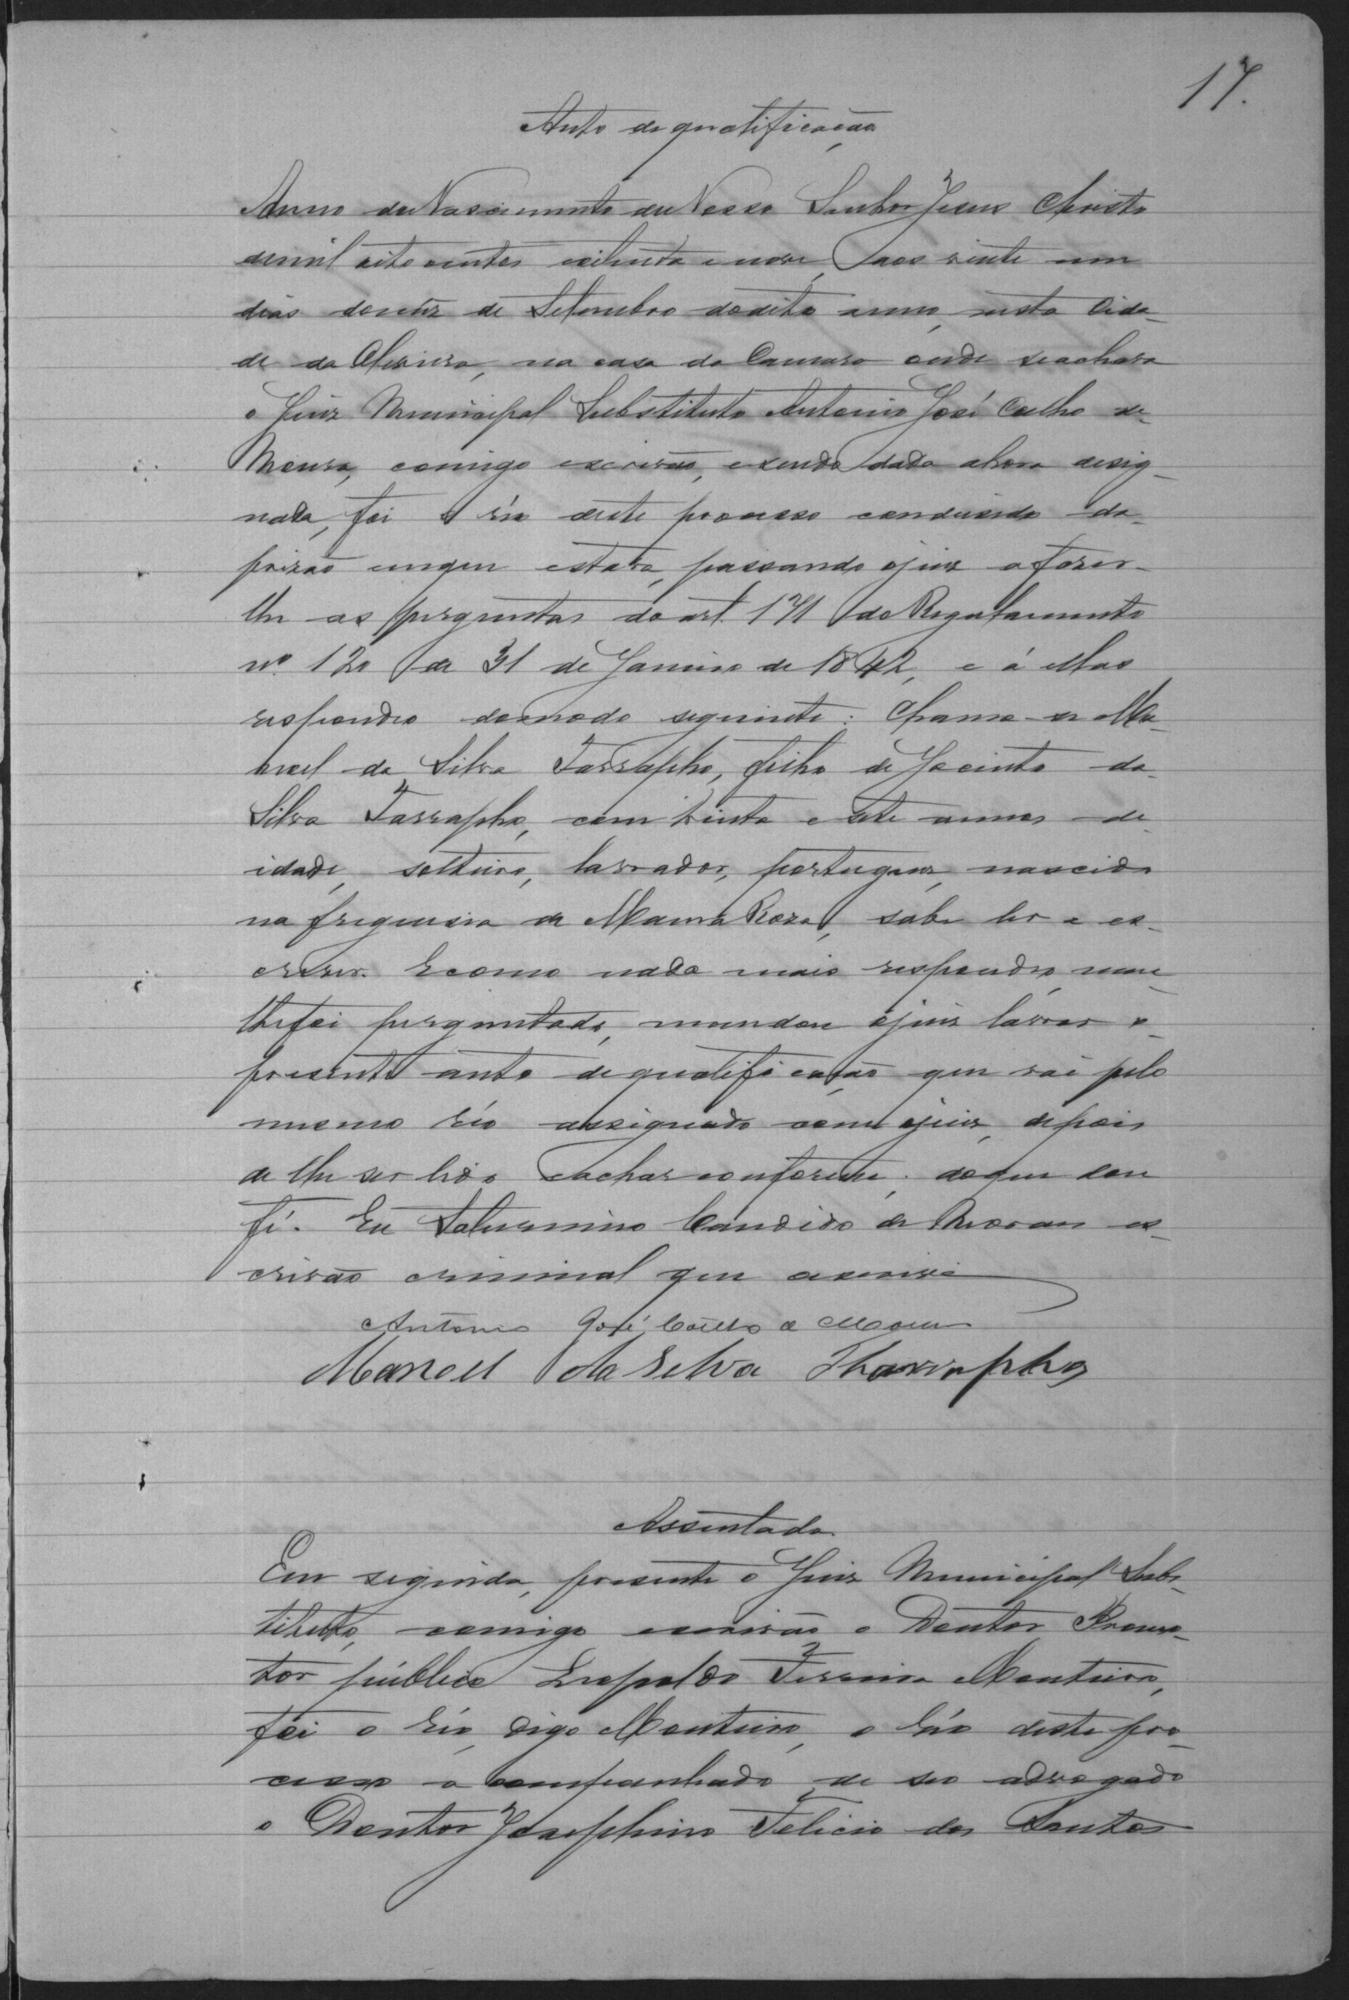 17.
Auto de qualificação
Anno do Nascimento de Nosso Senhor Jesus Christo
de mil oito centos oitenta e nove, aos vinte um
dias do mez de Setembro do dito anno, nesta Cida-
de da Oliveira, na casa da Camara onde se achava
o Juiz Municipal Substituto Antonio José Coelho de
Moura, comigo escrivão, e sendo dada ahora desig-
nada, foi o réo deste processo conduzido da
prizão em que estava, passando o juiz a fazer-
lhe as perguntas do art. 171 do Regulamento
nº 120 de 31 de Janeiro de 1842, e á ellas
respondeo do modo seguinte: Chama-se Ma-
noel da Silva Tarrapho, filho de Jacinto da
Silva Tarrapho, com trinta e sete annos de
idade, solteiro, lavrador, portuguez, nascido
na freguesia de Mama Roza, sabe ler e es-
crever. E como nada mais respondeo, nem
lhe foi perguntado, mandou o juiz lavrar o
presente auto de qualificação que vai pelo
mesmo réo assignado com o juiz, depois
de lhe ser lido e achar conforme; do que dou
fé. Eu Saturnino Candido de Moraes es-
crivão criminal que escrevi
Antonio José Coelho de Moura
Manoel da Selva Tharrapho
Assentada
Em seguida, presente o Juiz Municipal Subs-
tituto, comigo escrivão e Doutor Promo-
tor público Leopoldo Ferreira Monteiro,
foi o réo, digo Monteiro, o réo deste pro-
cesso acompanhado de seo advogado
o Doutor Josephino Felicio dos Santos